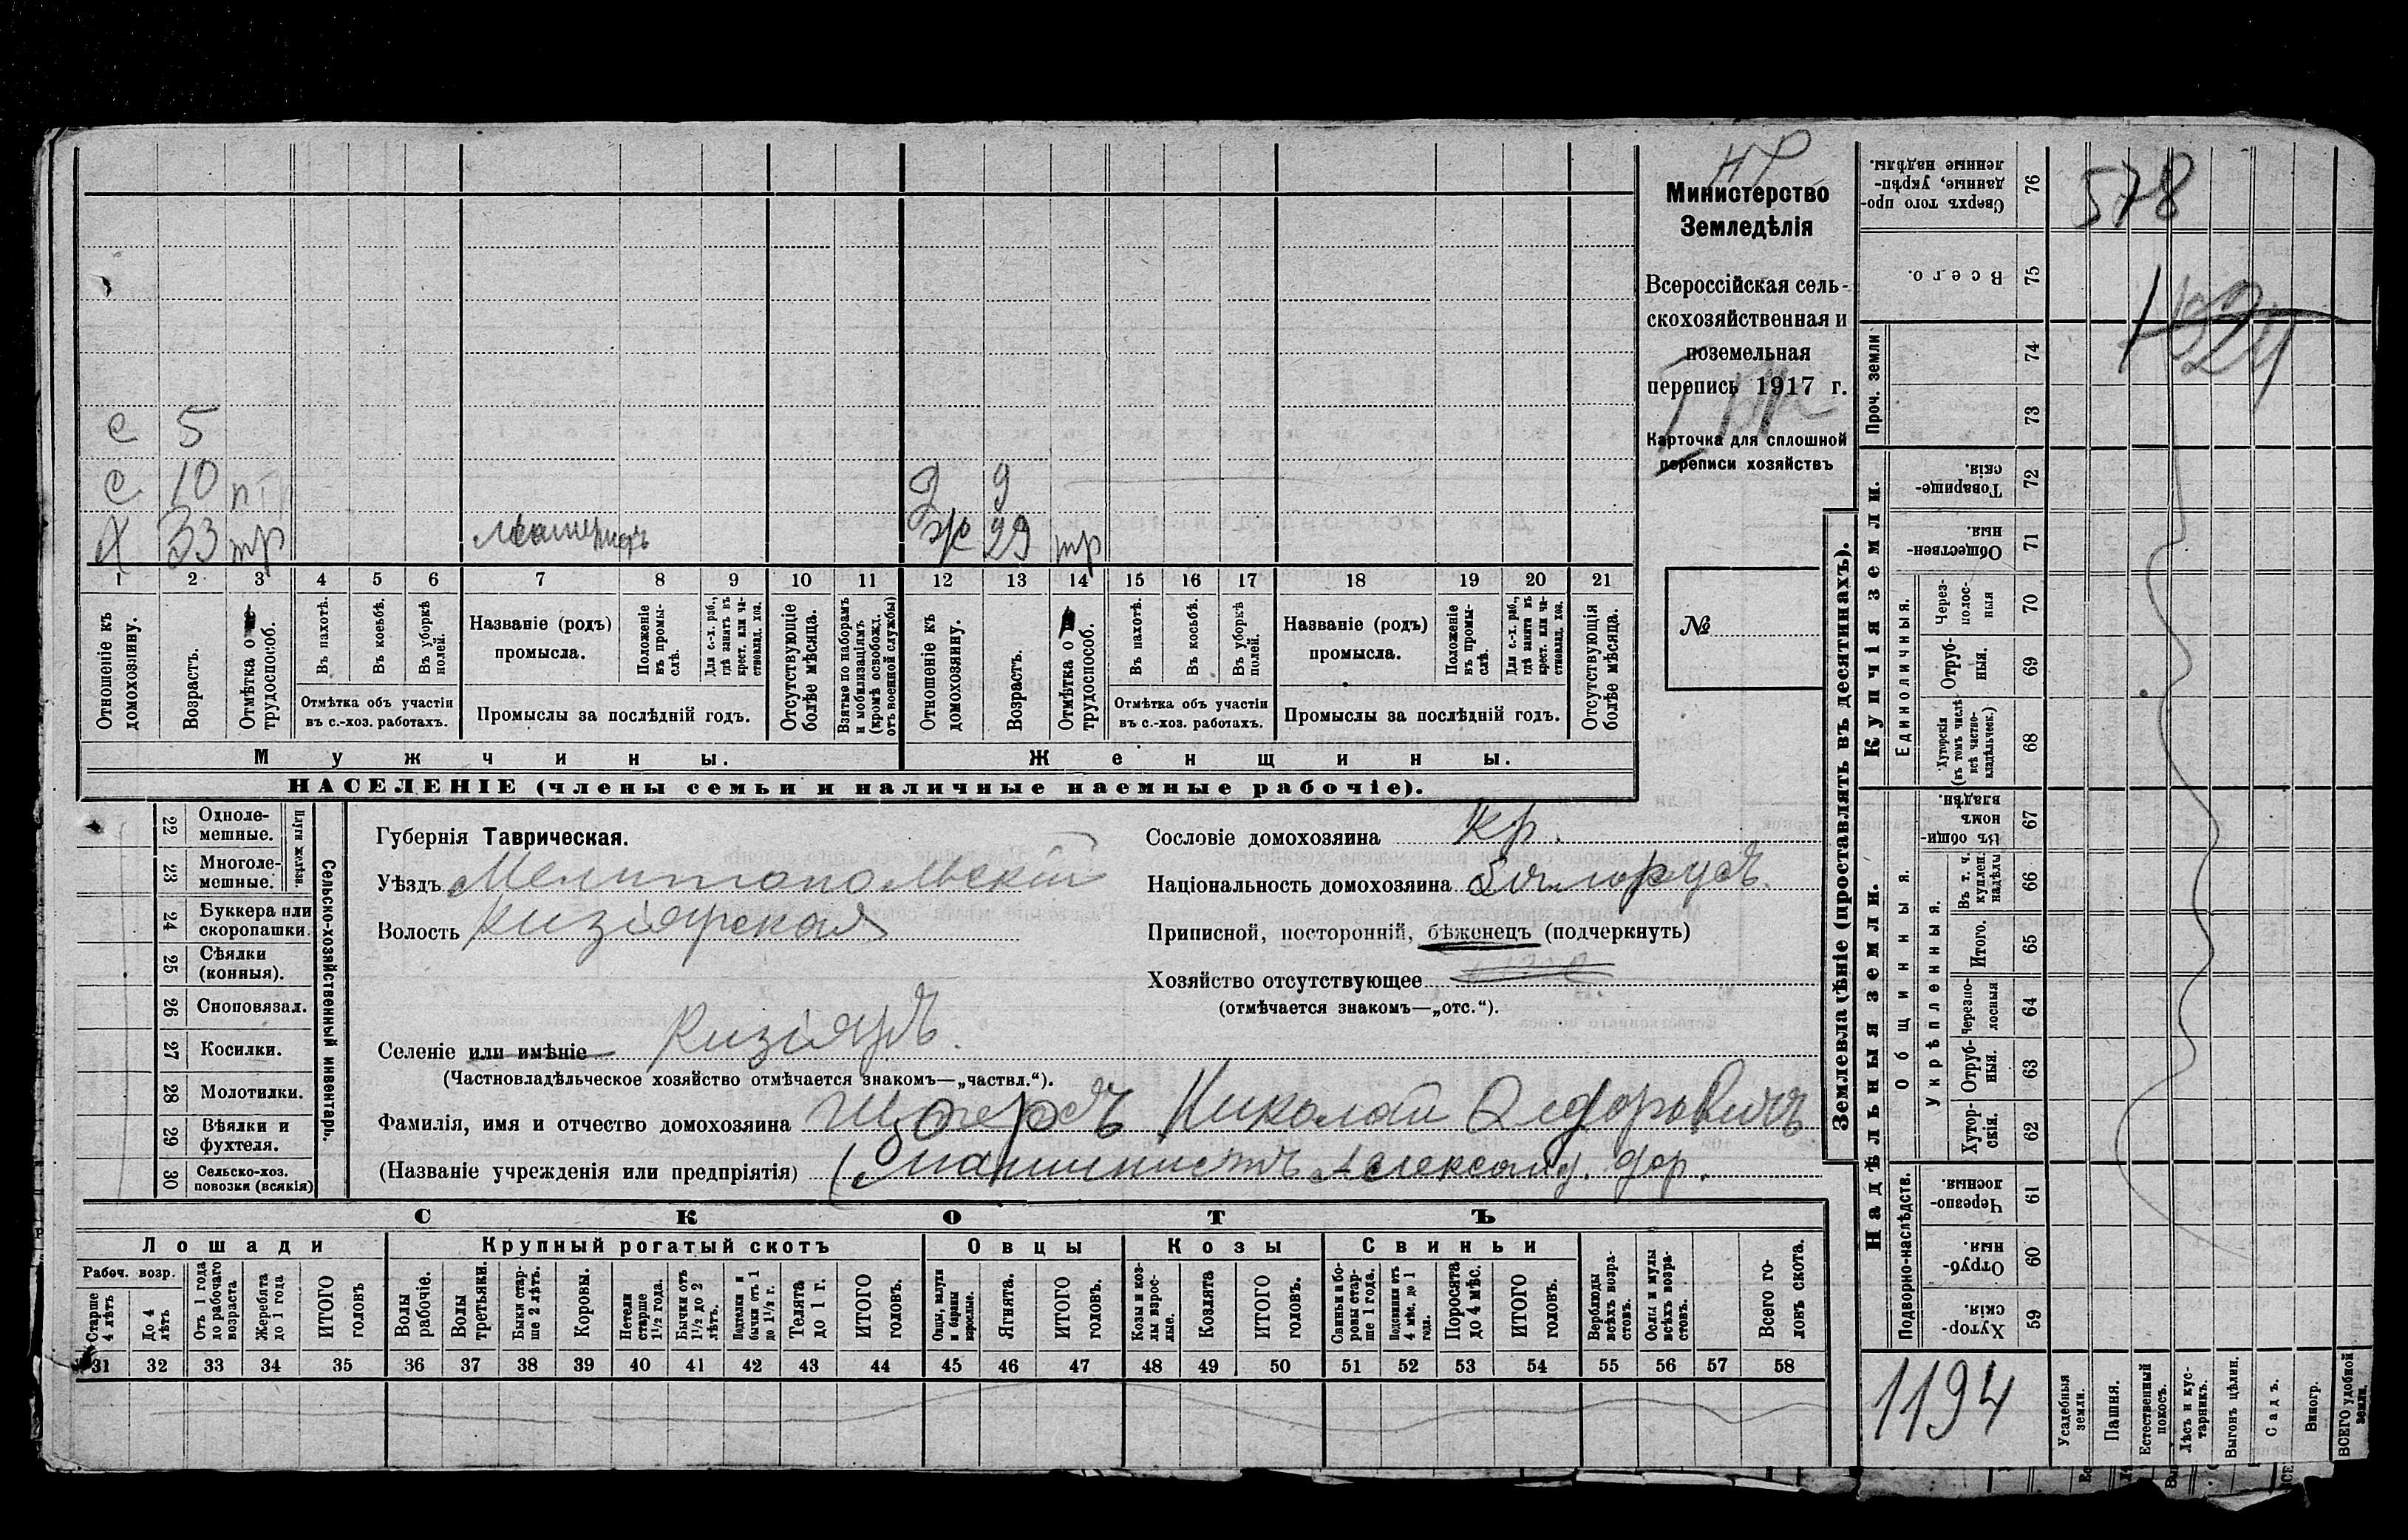 нр
Министерство
Земледѣлія
Всероссійская сель-
скохозяйственная и
поземельная
перепись 1917 г.
Карточка для сплошной
переписи хозяйствъ
№
с 5
с 10 пт
х 33 тр
Д 9
ж 29 тр
1 2 3 4 5 6 7 8 9 10 11 12 13 14 15 16 17 18 19 20 21
Отношеніе къ домохозяину.
Возрастъ.
Отмѣтка о трудоспособ.
Въ пахотѣ.
Въ косьбѣ.
Въ уборкѣ полей.
Отмѣтка объ участіи
въ с.-хоз. работахъ.
Названіе (родъ)
промысла.
Положеніе въ промыслѣ.
Для с.-х. раб., гдѣ занятъ въ крест. или частновлад. хоз.
Промыслы за послѣдній годъ.
Отсутствующіе болѣе мѣсяца.
Взятые по наборамъ и мобилизаціямъ (кромѣ освобожд. отъ военной службы)
Отношеніе къ домохозяину.
Возрастъ.
Отмѣтка о трудоспособ.
Въ пахотѣ.
Въ косьбѣ.
Въ уборкѣ полей.
Отмѣтка объ участіи
въ с.-хоз. работахъ.
Названіе (родъ)
промысла.
Положеніе въ промыслѣ.
Для с.-х. раб., гдѣ занята въ крест. или частновлад. хоз.
Промыслы за послѣдній годъ.
Отсутствующія болѣе мѣсяца.
Мужчины.
Женщины.
НАСЕЛЕНІЕ (члены семьи и наличные наемные рабочіе).
22 Одноле-
мешные.
23 Многоле-
мешные.
Плуги желѣзн.
24 Буккера или
скоропашки.
25 Сѣялки
(конныя).
26 Сноповязал.
27 Косилки.
28 Молотилки.
29 Вѣялки и
фухтеля.
30 Сельско-хоз.
повозки (всякія)
Сельско-хозяйственный инвентарь.
Губернія Таврическая.
Уѣздъ Мелитопольскій
Волость Кизіярская
Селеніе или имѣніе Кизіяръ.
(Частновладѣльческое хозяйство отмѣчается знакомъ—„частвл.“).
Сословіе домохозяина кр.
Національность домохозяина Бѣлорусъ.
Приписной, посторонній, бѣженецъ (подчеркнуть)
Хозяйство отсутствующее
(отмѣчается знакомъ—„отс.“).
Фамилія, имя и отчество домохозяина Николай Федоровичъ
(Названіе учрежденія или предпріятія) (Машинистъ Александ. дор.
СКОТЪ
Лошади
Крупный рогатый скотъ
Овцы
Козы
Свиньи
Рабоч. возр.
Старше 4 лѣтъ
До 4 лѣтъ
Отъ 1 года до рабочаго возраста
Жеребята до 1 года
ИТОГО головъ
Волы рабочіе.
Волы третьяки.
Быки старше 2 лѣтъ.
Коровы.
Нетели старше 1½ года.
Бычки отъ 1½ до 2 лѣтъ.
Подтелки и бычки отъ 1 до 1½ г.
Телята до 1 г.
ИТОГО головъ.
Овцы, валухи и бараны взрослые.
Ягнята.
ИТОГО головъ.
Козы и козлы взрослые.
Козлята
ИТОГО головъ.
Свиньи и боровы старше 1 года.
Подсвинки отъ 4 мѣс. до 1 года.
Поросята до 4 мѣс.
ИТОГО головъ.
Верблюды всѣхъ возрастовъ.
Ослы и мулы всѣхъ возрастовъ.
Всего головъ скота.
31 32 33 34 35 36 37 38 39 40 41 42 43 44 45 46 47 48 49 50 51 52 53 54 55 56 57 58
Землевладѣніе (проставлять въ десятинахъ).
Сверхъ того проданные, укрѣпленные надѣлы. 76
578
Всего. 75
Проч. земли
74
73
Купчія земли.
Товарищескія. 72
Общественныя. 71
Единоличныя.
Черезполосныя 70
Отрубныя. 69
Хуторскія (въ томъ числѣ всѣ частновладѣльческ.) 68
Надѣльныя земли.
Общинныя.
Въ общинномъ владѣн. 67
Укрѣпленныя.
Въ т. ч. куплен. надѣлы 66
Итого. 65
Черезполосныя 64
Отрубныя. 63
Хуторскія. 62
Подворно-наслѣдств.
Черезполосныя. 61
Отрубныя. 60
Хуторскія. 59
1194
Усадебныя земли.
Пашня.
Естественный покосъ.
Лѣсъ и кустарникъ.
Выгонъ цѣлин.
Садъ.
Виногр.
ВСЕГО удобной земли.